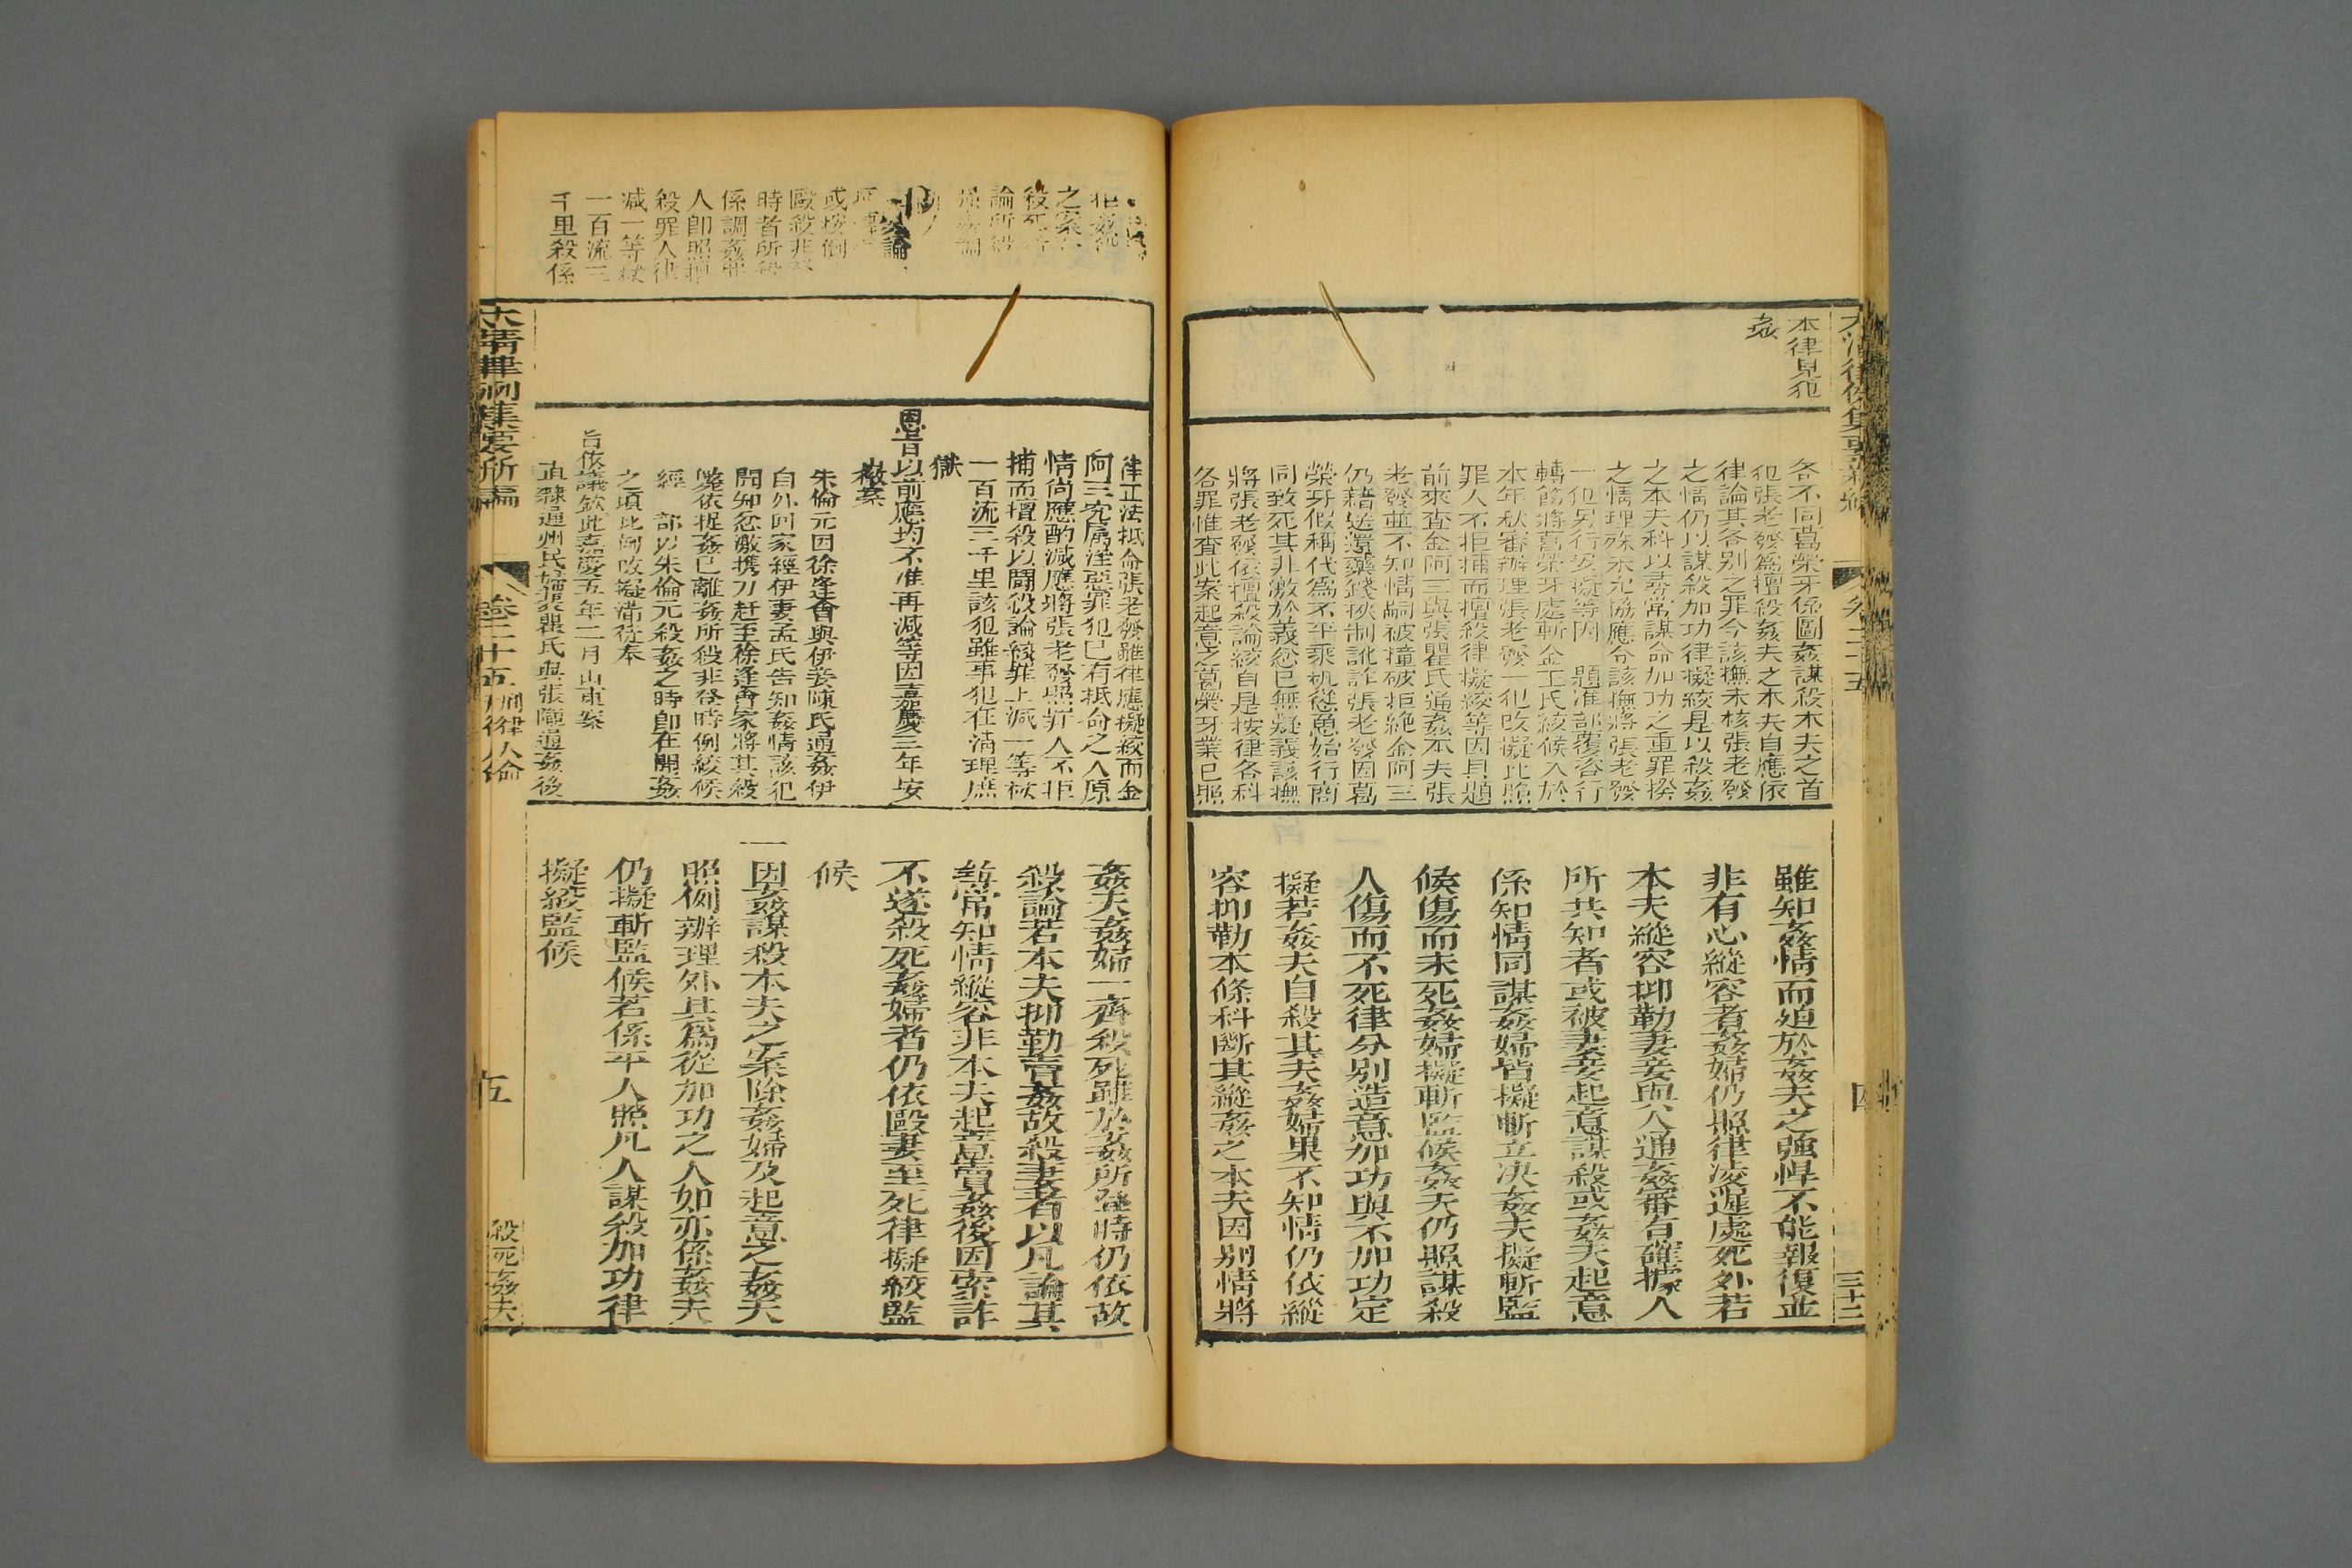 本律見犯
姦
各不同葛榮牙係圖姦謀殺本夫之首
犯張老發爲擅殺姦夫之本夫自應依
律論其各別之罪今該撫未核張老發
之情仍以謀殺加功律擬絞是以殺姦
之本夫科以尋常謀命加功之重罪揆
之情理殊未允協應令該撫將張老發
一犯另行妥擬等因題准部覆咨行
轉飭將葛榮牙處斬金丁氏絞候入於
本年秋審辦理張老發一犯改擬比照
罪人不拒捕而擅殺律擬絞等因具題
前來查金阿三與張瞿氏通姦本夫張
老發並不知情嗣被撞破拒絶金阿三
仍藉送還藥錢挾制訛詐張老發因葛
榮牙假稱代爲不平乘机慫恿始行商
同致死其非激於義忿已無疑義該撫
將張老發依擅殺論絞自是按律各科
各罪惟查此案起意之葛榮牙業已照
雖知姦情而廹於姦夫之強悍不能報復並
非有心縱容者姦婦仍照律凌遲處死外若
本夫縱容抑勒妻妾與人通姦審有確據人
所共知者或被妻妾起意謀殺或姦夫起意
係知情同謀姦婦皆擬斬立决姦夫擬斬監
候傷而未死姦婦擬斬監候姦夫仍照謀殺
人傷而不死律分別造意加功與不加功定
擬若姦夫自殺其夫姦婦果不知情仍依縱
容抑勒本條科斷其縱姦之本夫因別情將
四
三十二
律正法抵命張老發雖律應擬絞而金
阿三究屬淫惡罪犯已有抵命之人原
情尚應酌減應將張老發照罪人不拒
捕而擅殺以鬭殺論絞罪上減一等杖
一百流三千里該犯雖事犯在淸理庶
獄
恩旨以前應均不准再減等因嘉慶三年安
徽案
朱倫元因徐逢會與伊妾陳氏通姦伊
自外回家經伊妻孟氏告知姦情該犯
聞知忿激携刀赶至徐逢會家將其殺
斃依捉姦已離姦所殺非登時例絞候
經部以朱倫元殺姦之時卽在聞姦
之頃比例改擬滿徒奉
旨依議欽此嘉慶五年二月山東案
直隸通州民婦張瞿氏與張隴通姦後
姦夫姦婦一齊殺死雖於姦所登時仍依故
殺論若本夫抑勒賣姦故殺妻者以凡論其
尋常知情縱容非本夫起意賣姦後因索詐
不遂殺死姦婦者仍依毆妻至死律擬絞監
候
一因姦謀殺本夫之案除姦婦及起意之姦夫
照例辦理外其爲從加功之人如亦係姦夫
仍擬斬監候若係平人照凡人謀殺加功律
擬絞監候
歐殺非登
時者所殺
係調姦罪
人卽照擅
殺罪人律
減一等杖
一百流三
千里殺係
大淸律例集要新編
卷二十五
刑律人命
五
殺死姦夫